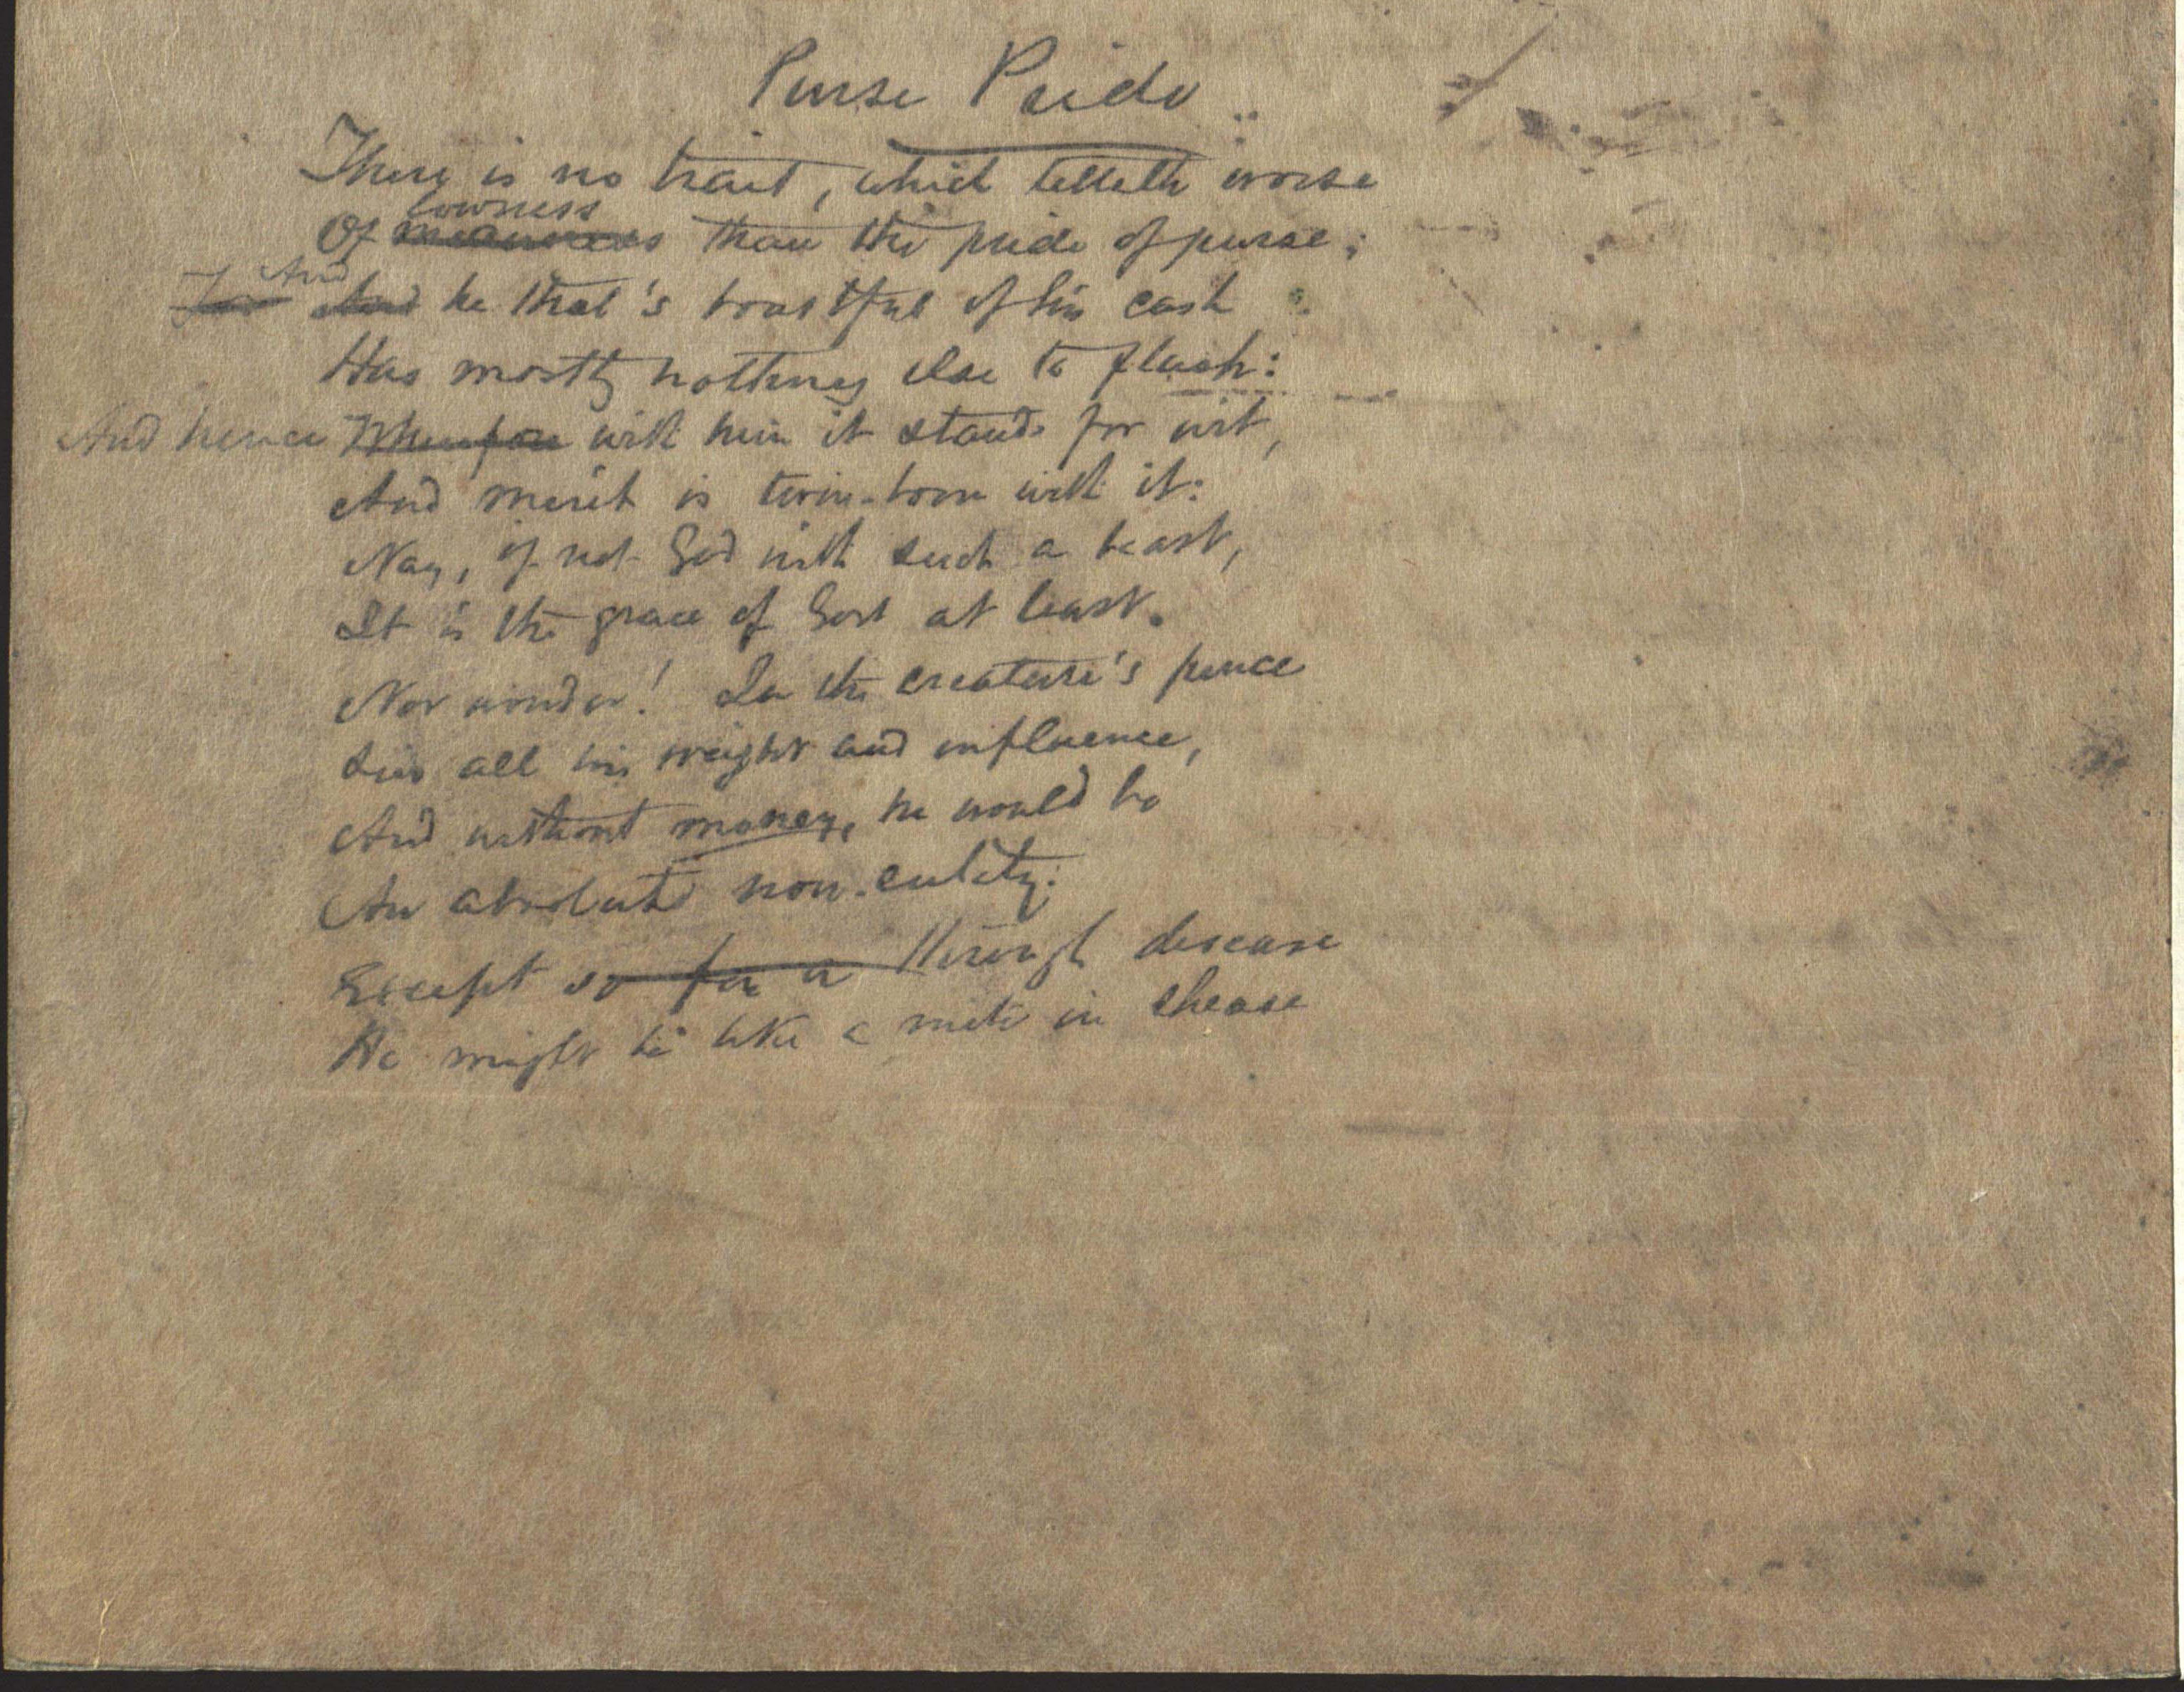 Purse Pride
There is no trait, which telleth worse
lowness
Of meanness than the pride of purse;
And
For And he that's boastful of his cash
Has mostly nothing else to flash:
And hence Wherefore with him it stands for wit,
And merit is twin-born with it:
Nay, if not God with such a beast,
It is the grace of God at least.
Nor wonder! In the creature's pence
Lies all his weight and influence,
And without money, he would be
An absolute non-entity:
Except so far as through disease
He might be like a mite in cheese